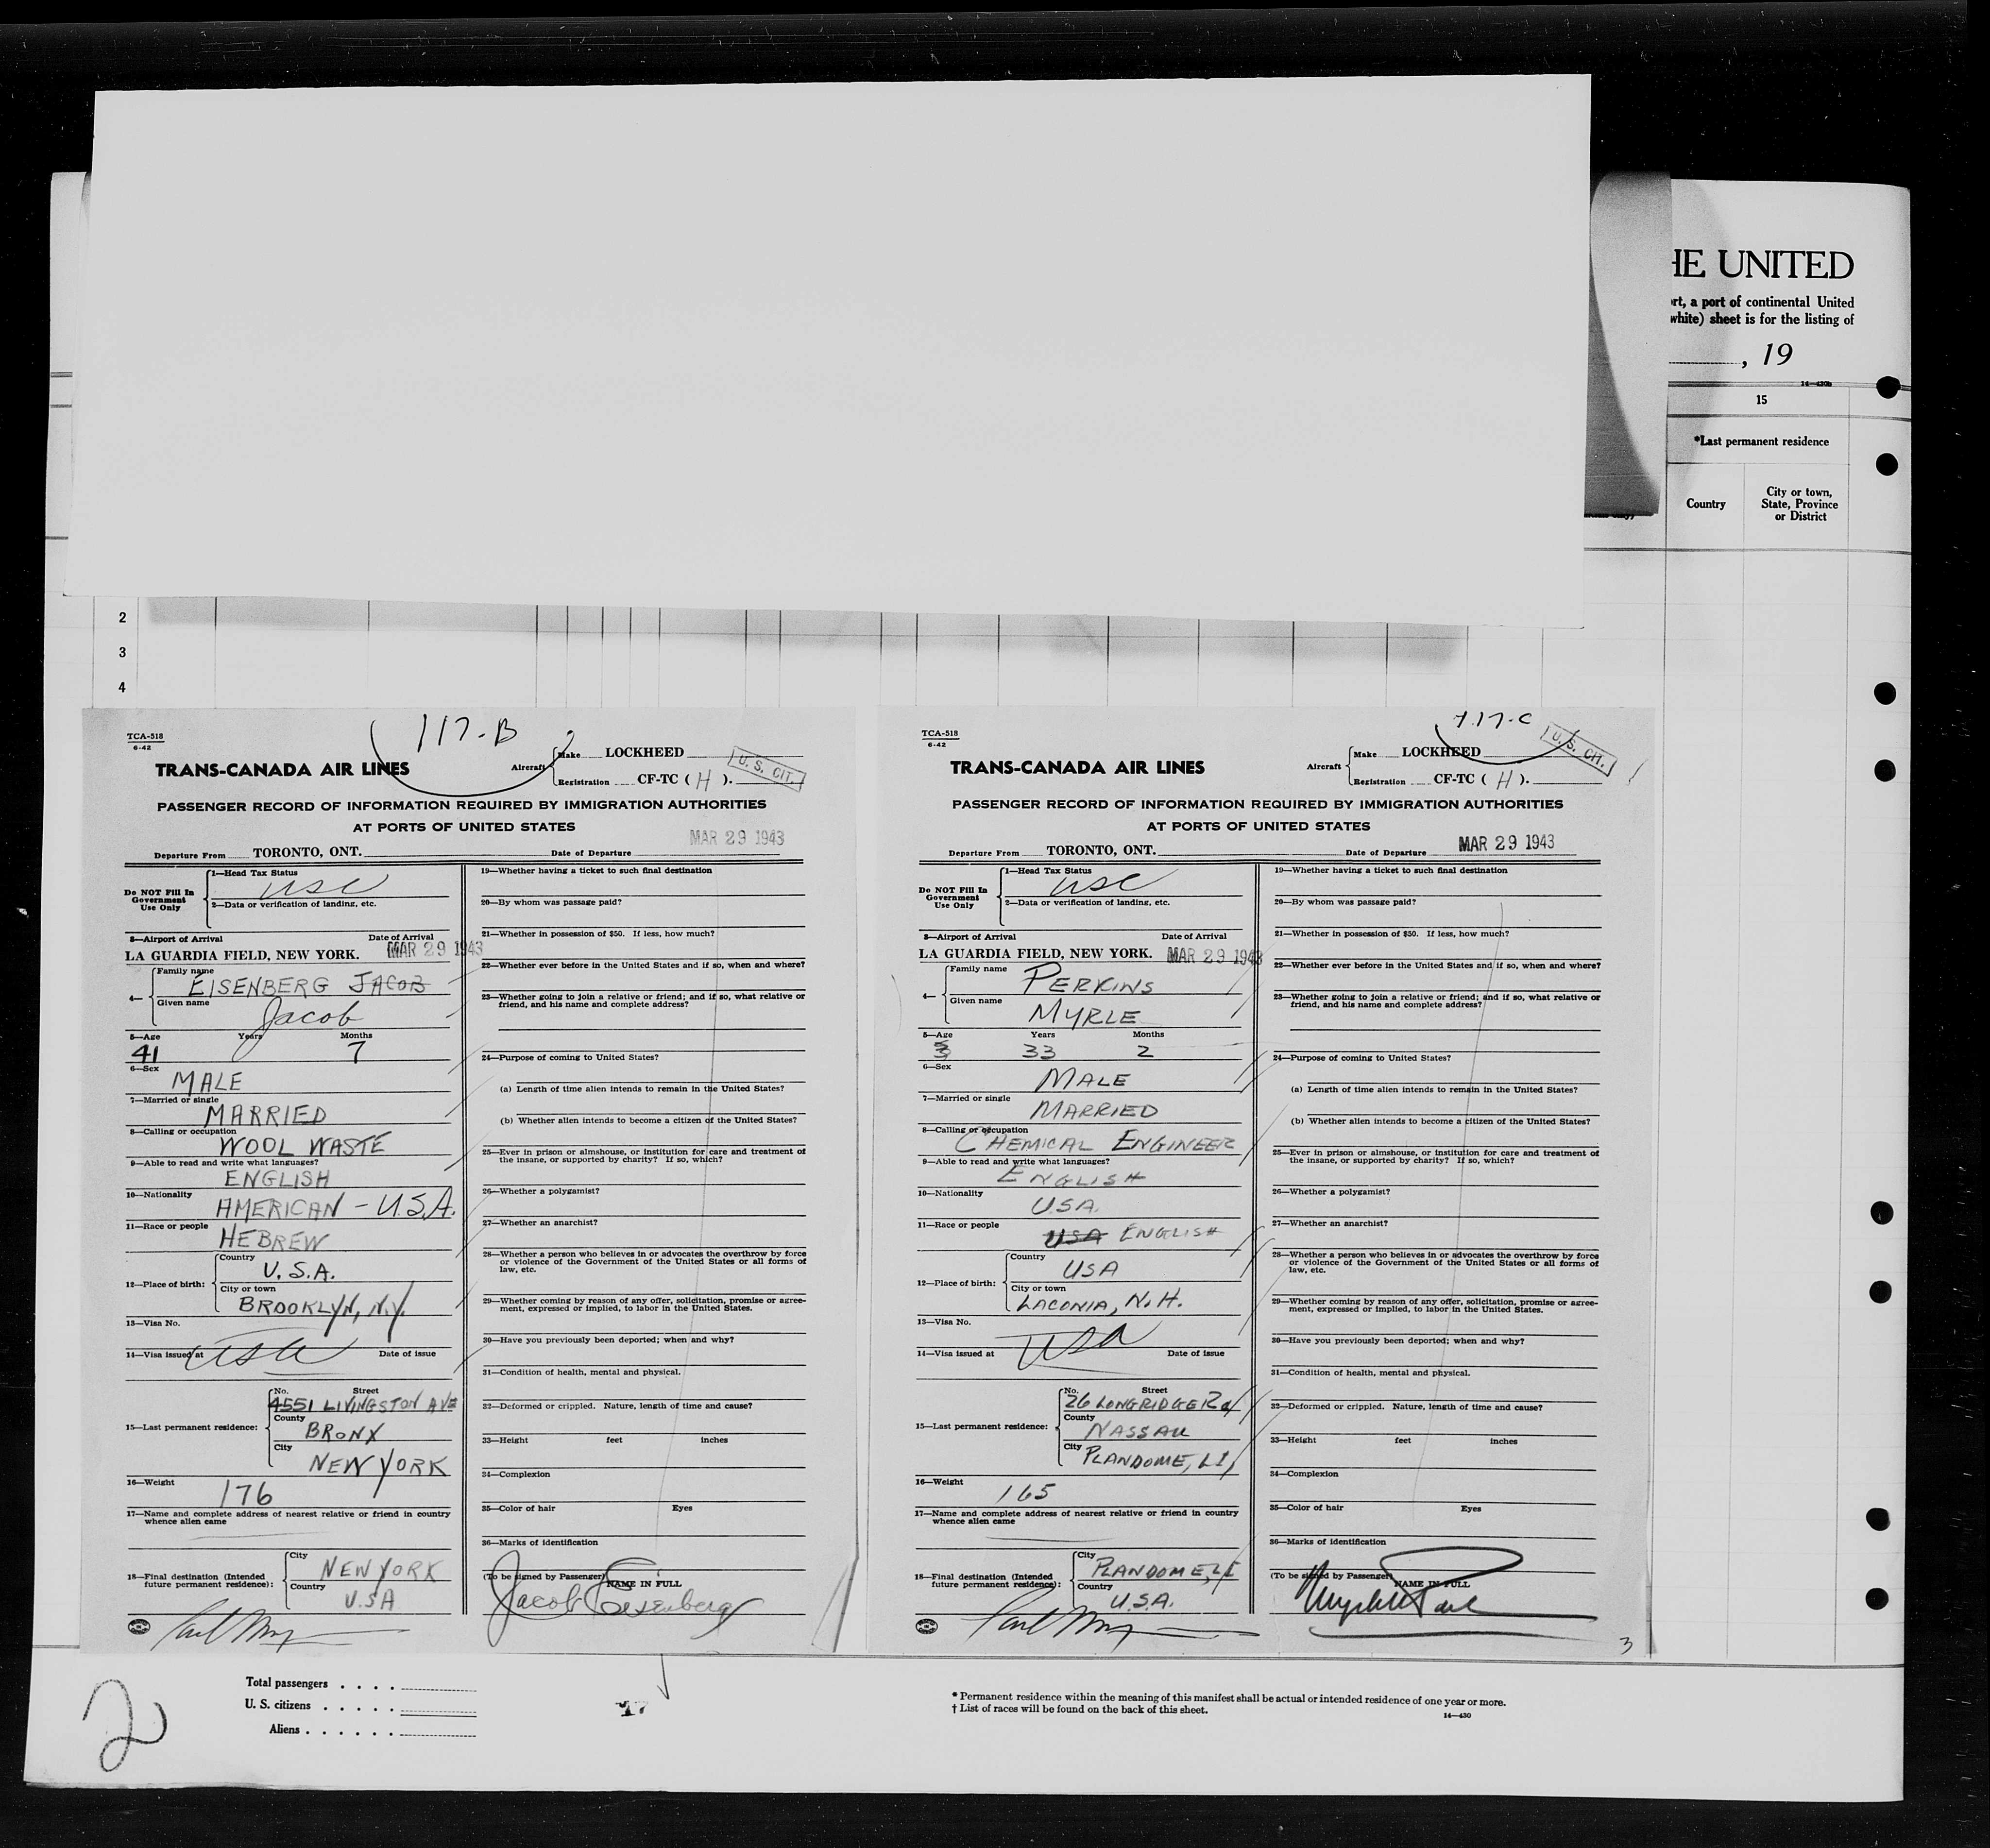 HE UNITED
rt, a port of continental United
white) sheet is for the listing of
, 19
14—430b
15
*Last permanent residence
Country
City or town,
State, Province
or District
2
3
4
TCA-518
6-42
117-B
TRANS-CANADA AIR LINES
Aircraft
Make LOCKHEED
Registration CF-TC ( H ).
U. S. CIT.
PASSENGER RECORD OF INFORMATION REQUIRED BY IMMIGRATION AUTHORITIES
AT PORTS OF UNITED STATES
MAR 29 1943
Departure From TORONTO, ONT. Date of Departure
Do NOT Fill In
Government
Use Only
1—Head Tax Status
USC
2—Data or verification of landing, etc.
3—Airport of Arrival Date of Arrival
LA GUARDIA FIELD, NEW YORK. MAR 29 1943
4—
Family name
EISENBERG JACOB
Given name
Jacob
5—Age Years Months
41 7
6—Sex
MALE
7—Married or single
MARRIED
8—Calling or occupation
WOOL WASTE
9—Able to read and write what languages?
ENGLISH
10—Nationality
AMERICAN - U.S.A.
11—Race or people
HEBREW
12—Place of birth:
Country
U.S.A.
City or town
BROOKLYN, N.Y.
13—Visa No.
14—Visa issued at Date of issue
15—Last permanent residence:
No. Street
4551 LIVINGSTON AVE
County
BRONX
City
NEW YORK
16—Weight
176
17—Name and complete address of nearest relative or friend in country
whence alien came
18—Final destination (Intended
future permanent residence):
City
NEW YORK
Country
U.S.A
19—Whether having a ticket to such final destination
20—By whom was passage paid?
21—Whether in possession of $50. If less, how much?
22—Whether ever before in the United States and if so, when and where?
23—Whether going to join a relative or friend; and if so, what relative or
friend, and his name and complete address?
24—Purpose of coming to United States?
(a) Length of time alien intends to remain in the United States?
(b) Whether alien intends to become a citizen of the United States?
25—Ever in prison or almshouse, or institution for care and treatment of
the insane, or supported by charity? If so, which?
26—Whether a polygamist?
27—Whether an anarchist?
28—Whether a person who believes in or advocates the overthrow by force
or violence of the Government of the United States or all forms of
law, etc.
29—Whether coming by reason of any offer, solicitation, promise or agree-
ment, expressed or implied, to labor in the United States.
30—Have you previously been deported; when and why?
31—Condition of health, mental and physical.
32—Deformed or crippled. Nature, length of time and cause?
33—Height feet inches
34—Complexion
35—Color of hair Eyes
36—Marks of identification
(To be signed by Passenger) NAME IN FULL
Jacob Eisenberg
TCA-518
6-42
117-C
TRANS-CANADA AIR LINES
Aircraft
Make LOCKHEED
Registration CF-TC ( H ).
U. S. CIT.
PASSENGER RECORD OF INFORMATION REQUIRED BY IMMIGRATION AUTHORITIES
AT PORTS OF UNITED STATES
MAR 29 1943
Departure From TORONTO, ONT. Date of Departure
Do NOT Fill In
Government
Use Only
1—Head Tax Status
USC
2—Data or verification of landing, etc.
3—Airport of Arrival Date of Arrival
LA GUARDIA FIELD, NEW YORK. MAR 29 1943
4—
Family name
PERKINS
Given name
MYRLE
5—Age Years Months
33 2
6—Sex
MALE
7—Married or single
MARRIED
8—Calling or occupation
CHEMICAL ENGINEER
9—Able to read and write what languages?
ENGLISH
10—Nationality
U.S.A.
11—Race or people
USA ENGLISH
12—Place of birth:
Country
USA
City or town
LACONIA, N.H.
13—Visa No.
14—Visa issued at Date of issue
USA
15—Last permanent residence:
No. Street
26 LONGRIDGE Rd
County
NASSAU
City
PLANDOME, LI,
16—Weight
165
17—Name and complete address of nearest relative or friend in country
whence alien came
18—Final destination (Intended
future permanent residence):
City
PLANDOME, LI
Country
U.S.A.
19—Whether having a ticket to such final destination
20—By whom was passage paid?
21—Whether in possession of $50. If less, how much?
22—Whether ever before in the United States and if so, when and where?
23—Whether going to join a relative or friend; and if so, what relative or
friend, and his name and complete address?
24—Purpose of coming to United States?
(a) Length of time alien intends to remain in the United States?
(b) Whether alien intends to become a citizen of the United States?
25—Ever in prison or almshouse, or institution for care and treatment of
the insane, or supported by charity? If so, which?
26—Whether a polygamist?
27—Whether an anarchist?
28—Whether a person who believes in or advocates the overthrow by force
or violence of the Government of the United States or all forms of
law, etc.
29—Whether coming by reason of any offer, solicitation, promise or agree-
ment, expressed or implied, to labor in the United States.
30—Have you previously been deported; when and why?
31—Condition of health, mental and physical.
32—Deformed or crippled. Nature, length of time and cause?
33—Height feet inches
34—Complexion
35—Color of hair Eyes
36—Marks of identification
(To be signed by Passenger) NAME IN FULL
3
2
Total passengers . . . .
U. S. citizens . . . . .
Aliens . . . . . .
17
* Permanent residence within the meaning of this manifest shall be actual or intended residence of one year or more.
† List of races will be found on the back of this sheet.
14—430